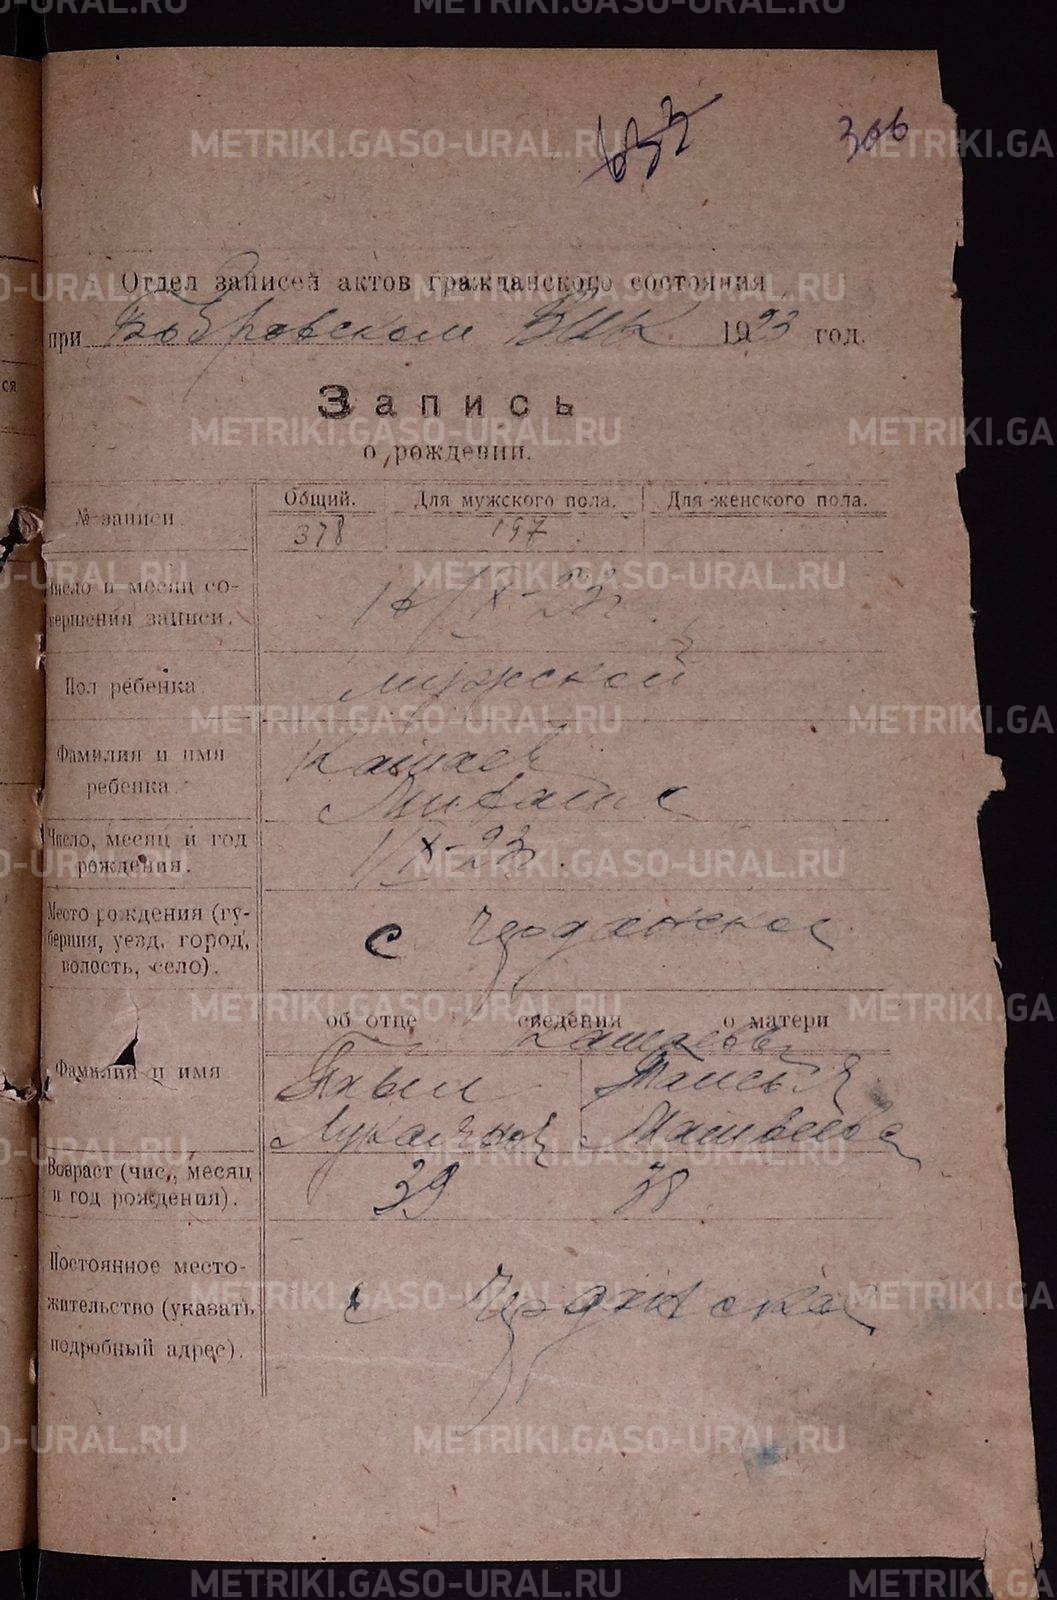 METRIKI.GASO-URAL.RU
306
Отдел записей актов гражданского состояния
при Бобровском ВИК 1923 год.
Запись
о рождении.
№ записи.
Общий.
Для мужского пола.
Для женского пола.
378
197
Число и месяц со-
вершения записи.
Пол ребенка.
мужской
Фамилия и имя
ребенка.
Кашаев
Михаил
Число, месяц и год
рождения.
1/X-23г.
Место рождения (гу-
берния, уезд, город,
волость, село).
с
об отце сведения о матери
Кашаевы
Фамилия и имя
Таисья
Матвеевна
Возраст (чис., месяц
и год рождения).
39
38
Постоянное место-
жительство (указать
подробный адрес).
с